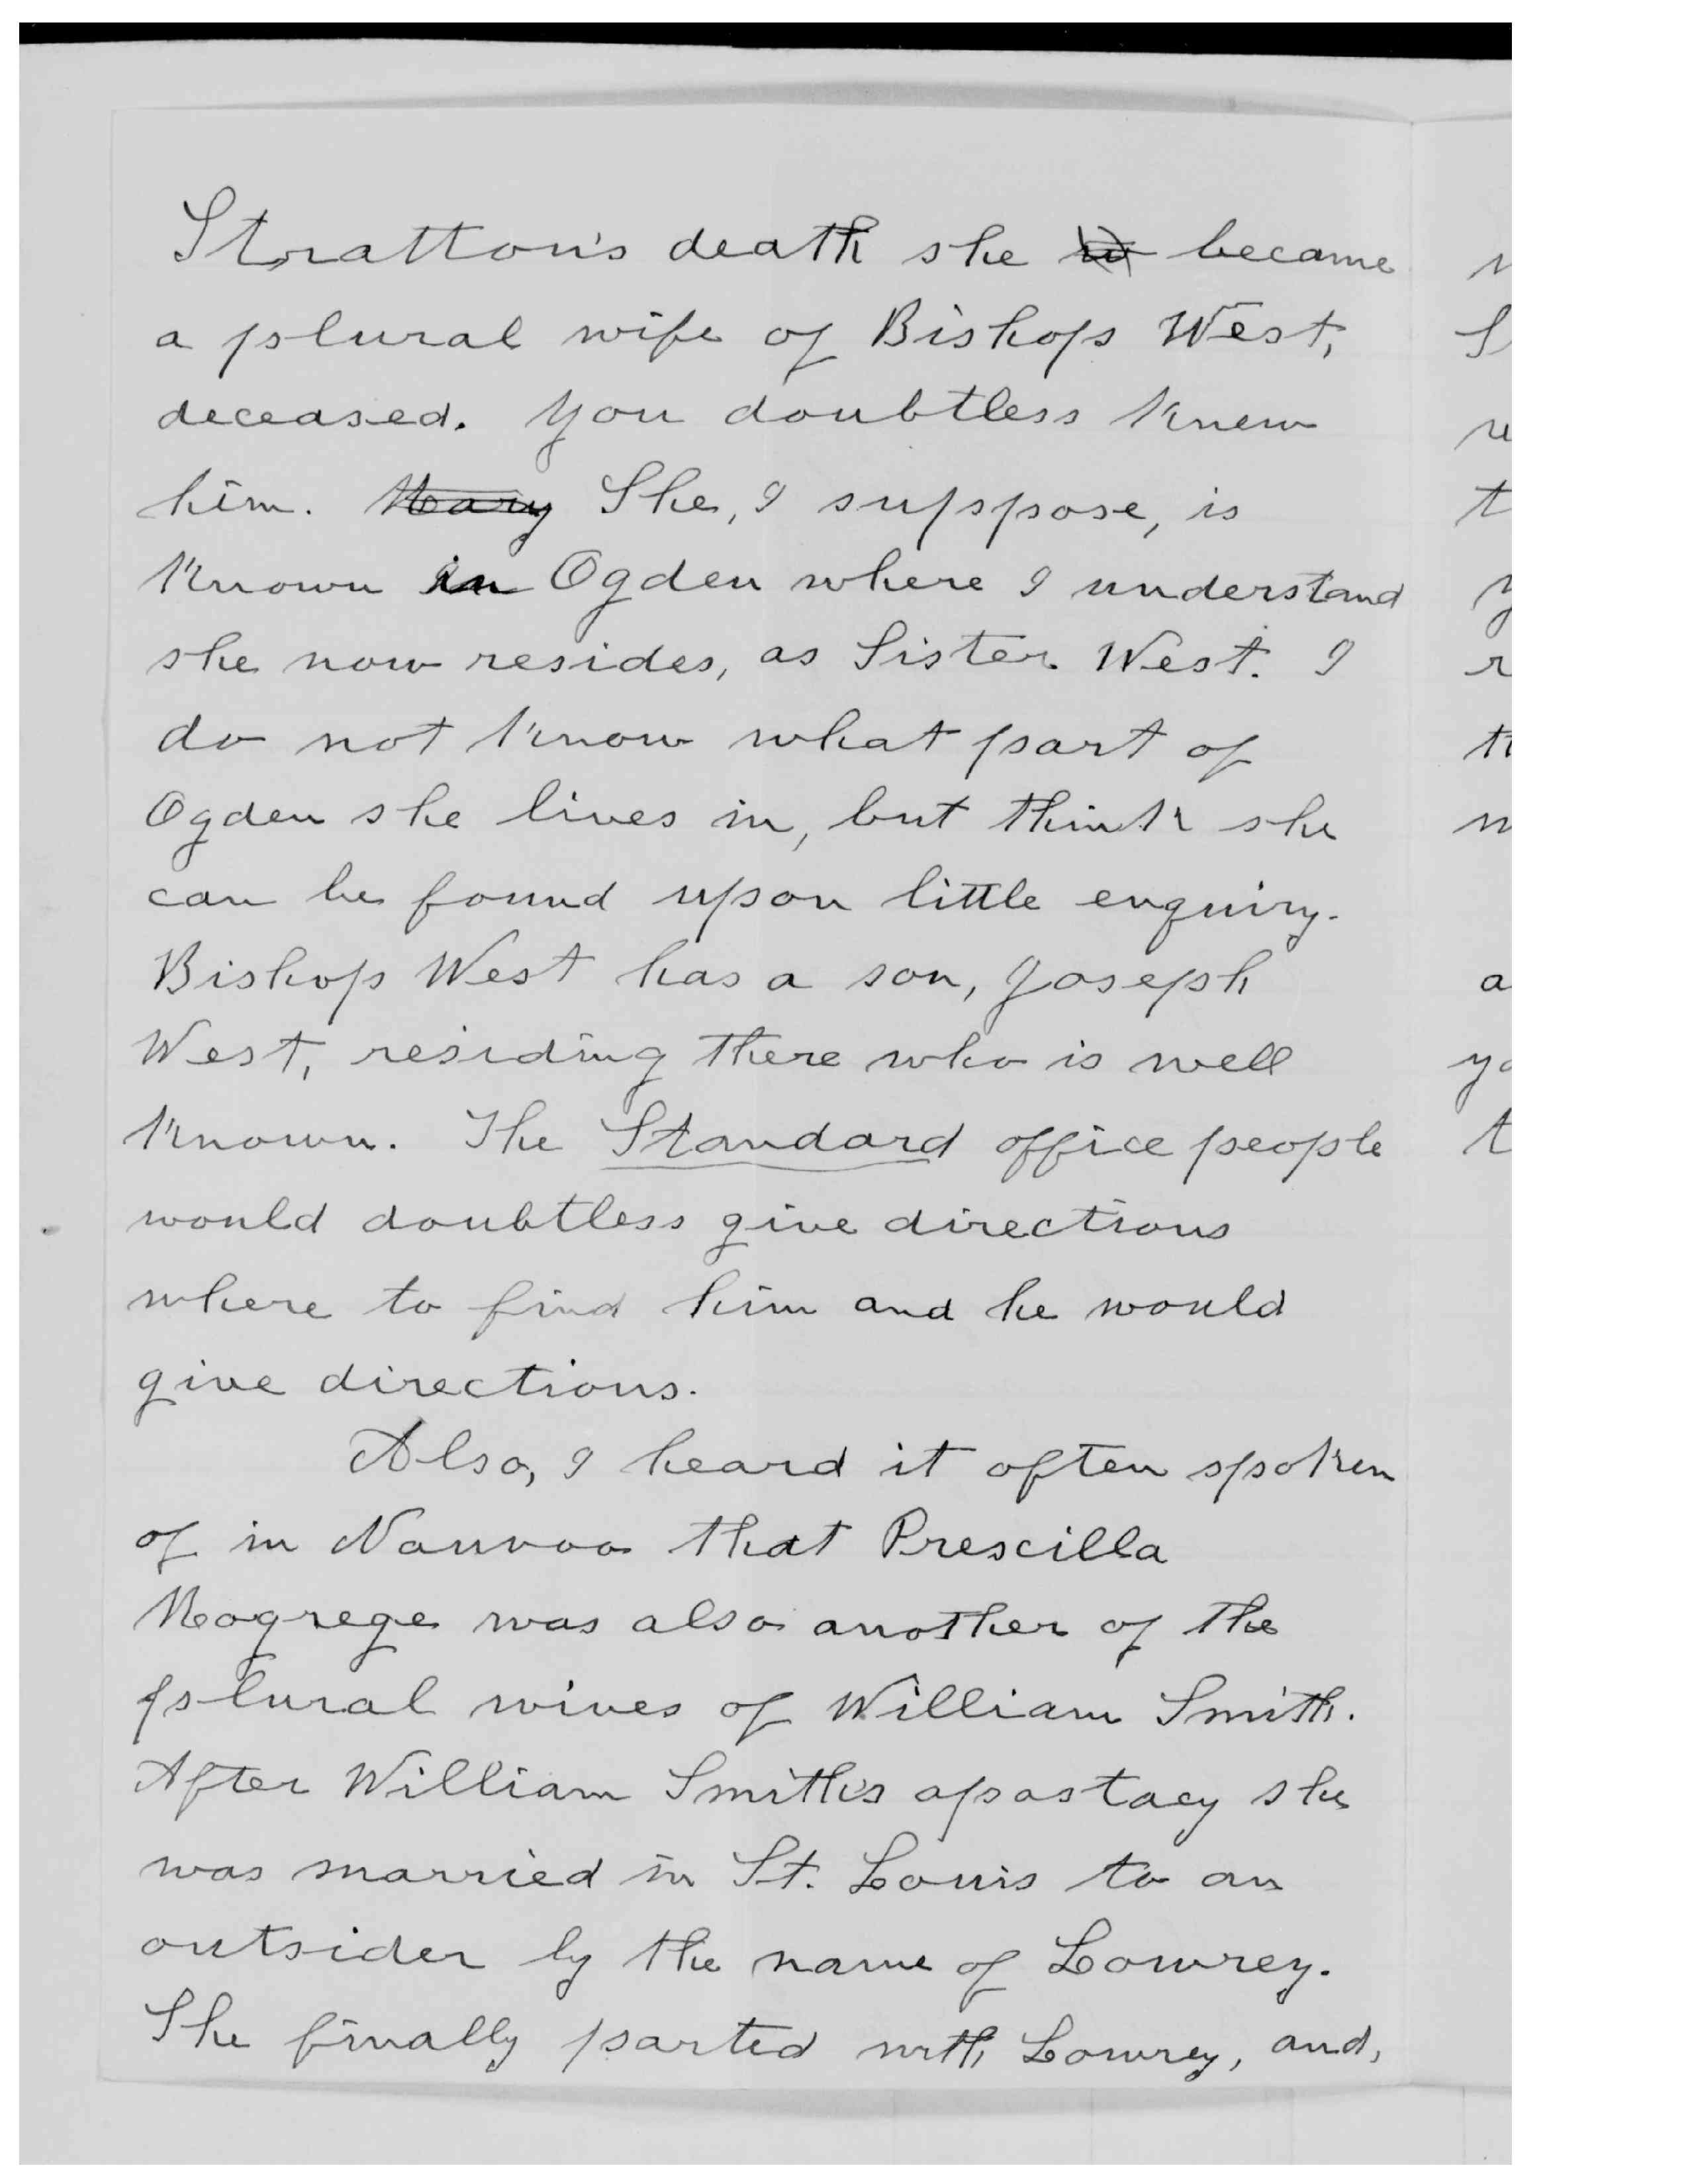 Stratton's death she became
a plural wife of Bishop West,
deceased. You doubtless knew
him. Mary She, I suppose, is
known in Ogden where I understand
she now resides, as Sister West. I
do not know what part of
Ogden she lives in, but think she
can be found upon little enquiry.
Bishop West has a son, Joseph
West, residing there who is well
known. The Standard office people
would doubtless give directions
where to find him and he would
give directions.
Also, I heard it often spoken
of in Nauvoo that Prescilla
Mogrege was also another of the
plural wives of William Smith.
After William Smith's apostacy she
was married in St. Louis to an
outsider by the name of Lowrey.
She finally parted with Lowrey, and,